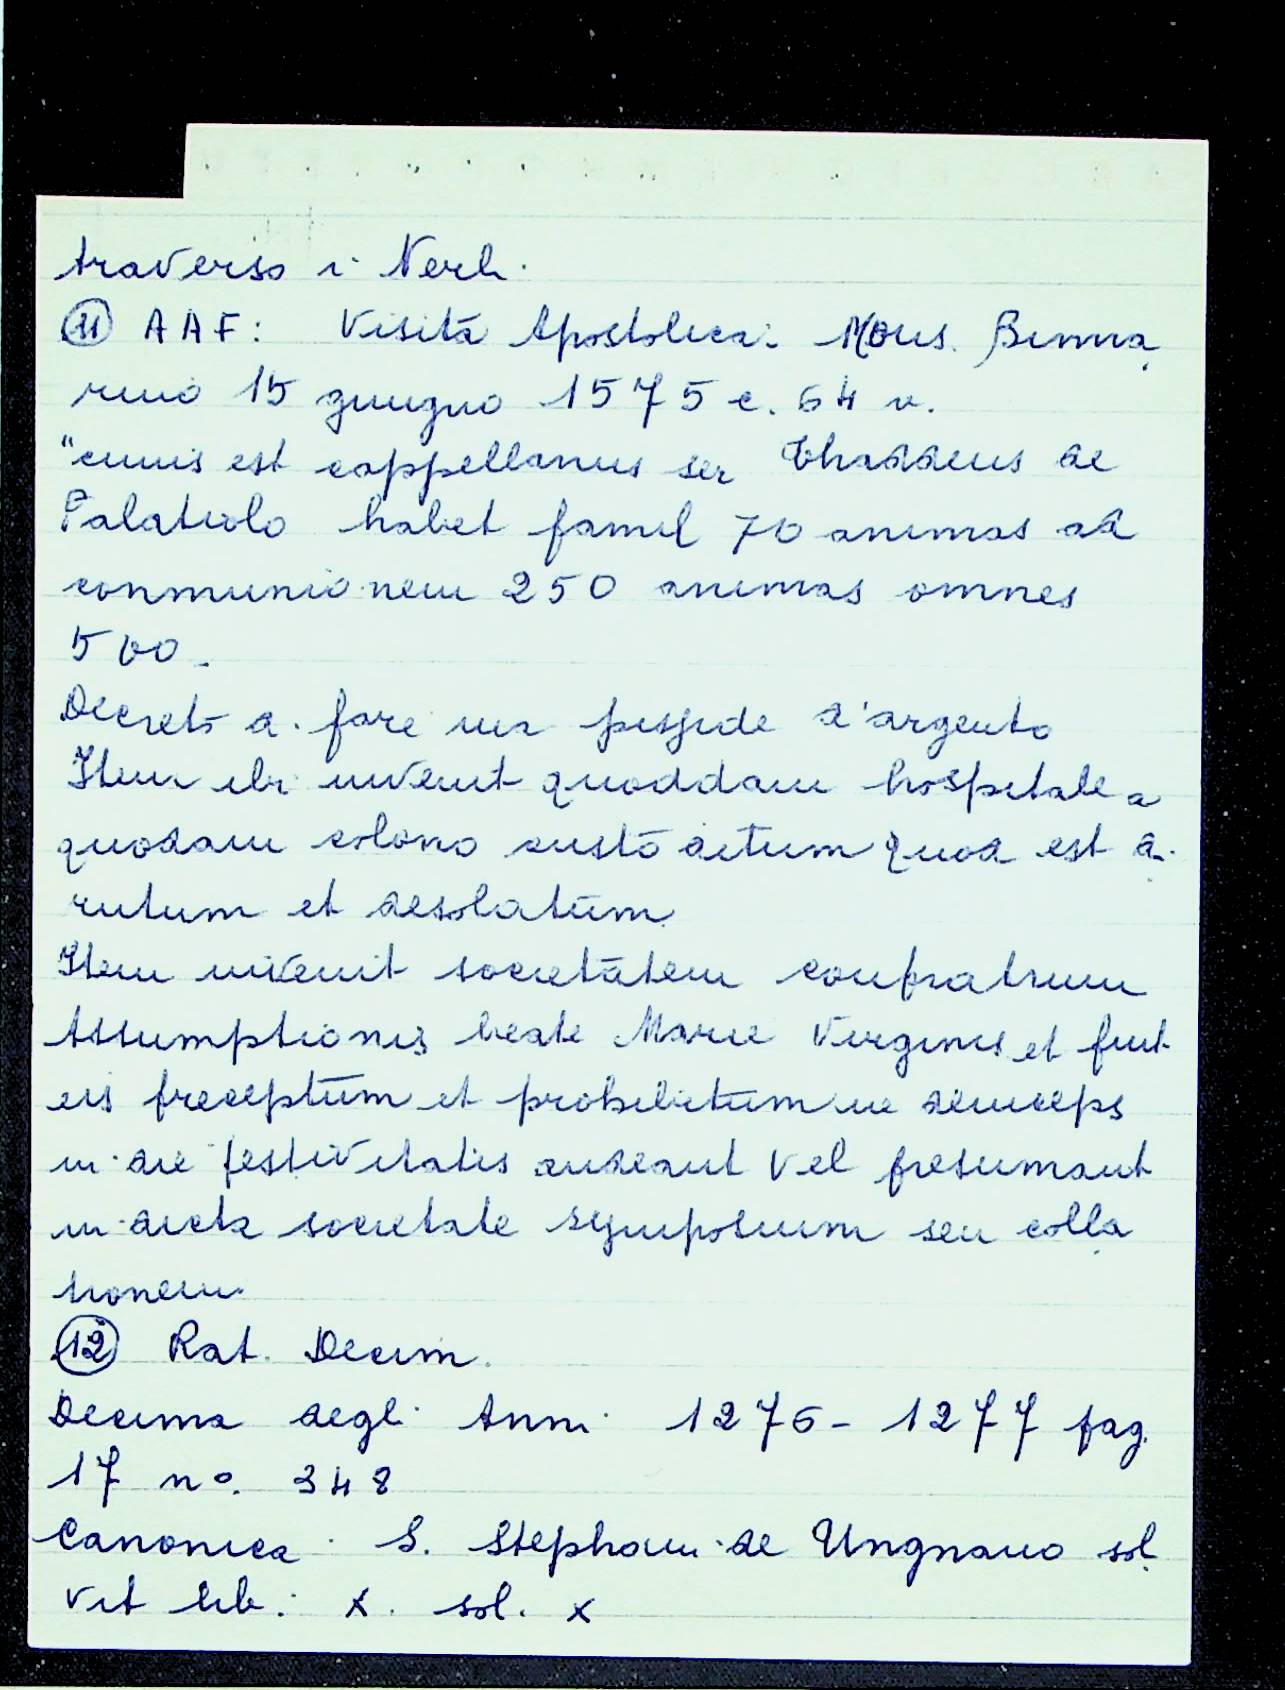 traverso i Nerli.
11 AAF: Visita Apostolica: Mons. Binna
rino 15 giugno 1575 c. 64 v.
"cuuis est cappellanus ser Thaddeus de
Palatiolo habet famil 70 animas ad
conmunionem 250 animas omnes
500.
Decreto di fare una pisside d'argento
Item ibi invenit quoddam hospitale a
quodam colono custoditum quod est di
rutum et desolatum
Item invenit societatem confratrum
Assumptionis beate Marie Virginis et fuit
eis preceptum et prohibitum ne deinceps
in die festivitatis audeant vel presumant
in dicta societate symposium seu colla
tionem.
12 Rat. Decim.
Decima degli Anni 1276-1277 pag.
17 no. 348
Canonica S. Stephani de Ungnano sol
vit lib: x. sol. x